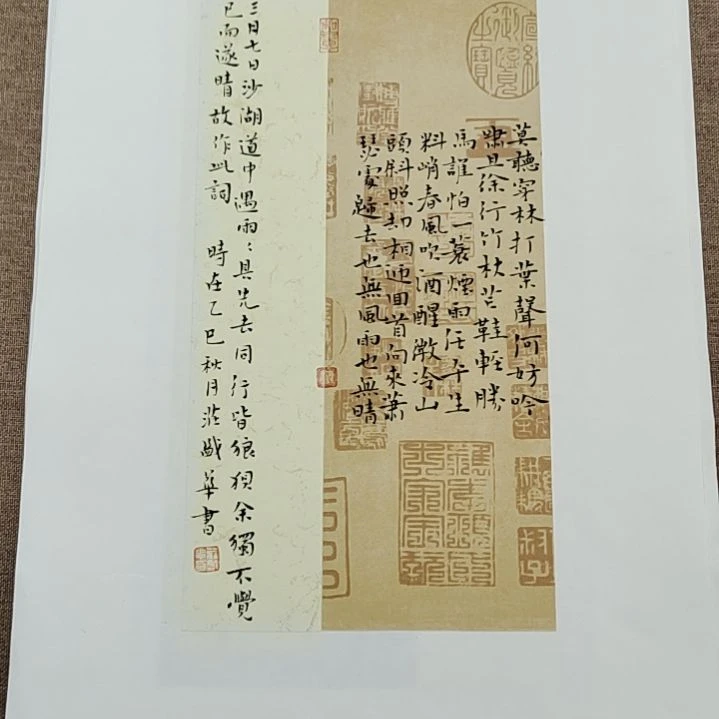 宣統御覽之寶
莫聽穿林打葉聲何妨吟
嘯且徐行竹杖芒鞋輕勝
馬誰怕一蓑煙雨任平生
料峭春風吹酒醒微冷山
頭斜照却相迎回首向來蕭
瑟處歸去也無風雨也無晴
三月七日沙湖道中遇雨〻具先去同行皆狼狽余獨不覺
已而遂晴故作此詞 時在乙巳秋月莊華書